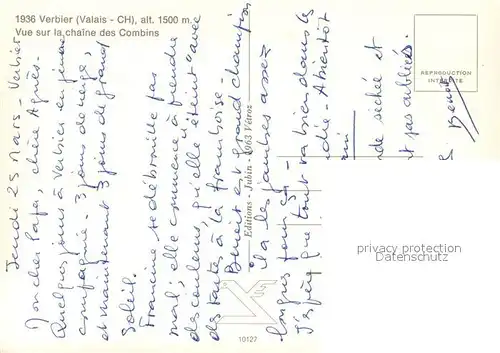 1936 Verbier (Valais - CH), alt. 1500 m.
Vue sur la chaîne des Combins
REPRODUCTION
INTERDITE
Jeudi 25 Mars - Verbier
Mon cher Papa, chère Agnès -
Quelques jours à Verbier en
compagnie - 3 jours de neige,
et maintenant 3 jours de grand
soleil.
Francine se débrouille pas
mal; elle commence à prendre
des couleurs, qu'elle éteint avec
des tartes à la framboise -
Benoît est grand champion
il a les jambes assez
longues pour ça -
J'espère que tout va bien dans le
- A bientôt
séchée et
pas oubliées.
Benoît
Editions - Jubin - 1963 Vétroz
10127
privacy protection
Datenschutz